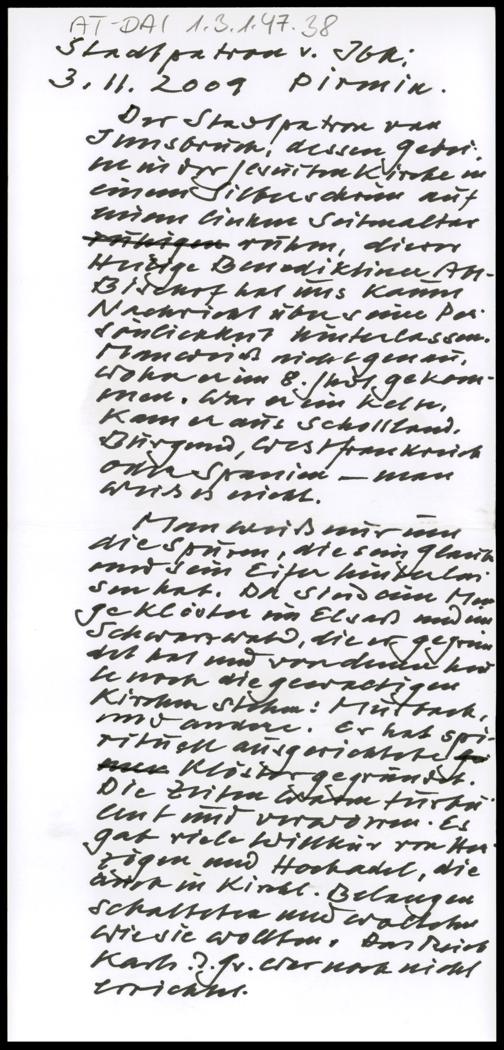 AT-DAI 1.3.1.47.38
Stadtpatron v. Ibk:
3.11.2009 Pirmin.
Der Stadtpatron von
Innsbruck, dessen Gebei-
ne in der Jesuitenkirche in
einem Silberschrein auf
einem linken Seitenaltar
ruhen, dieser
Heilige Benediktiner Abt-
Bischof hat uns kaum
Nachricht über seine Per
sönlichkeit hinterlassen.
Man weiß nicht genau,
woher er im 8. Jhdt gekom-
men. War er ein Kelte,
Kam er aus Schottland.
Burgund, Westfrankreich
oder Spanien – man
weiß es nicht.
Man weiß nur um
die Spuren, die sein Glaube
und sein Eifer hinterlas-
sen hat. Da sind eine Men
ge Klöster im Elsaß und im
Schwarzwald, die er gegrün
det hat und von denen heu
te noch die gewaltigen
Kirchen stehen: Murbach,
und andere. Er hat spi-
rituell ausgerichtete
Klöster gegründet.
Die Zeiten waren turbu
lent und verworren. Es
gab viele Willkür von Her
zögen und Hochadel, die
auch in Kirchl. Belangen
schalteten und walteten
wie sie wollten. Das Reich
Karls d. Gr. war noch nicht
errichtet.